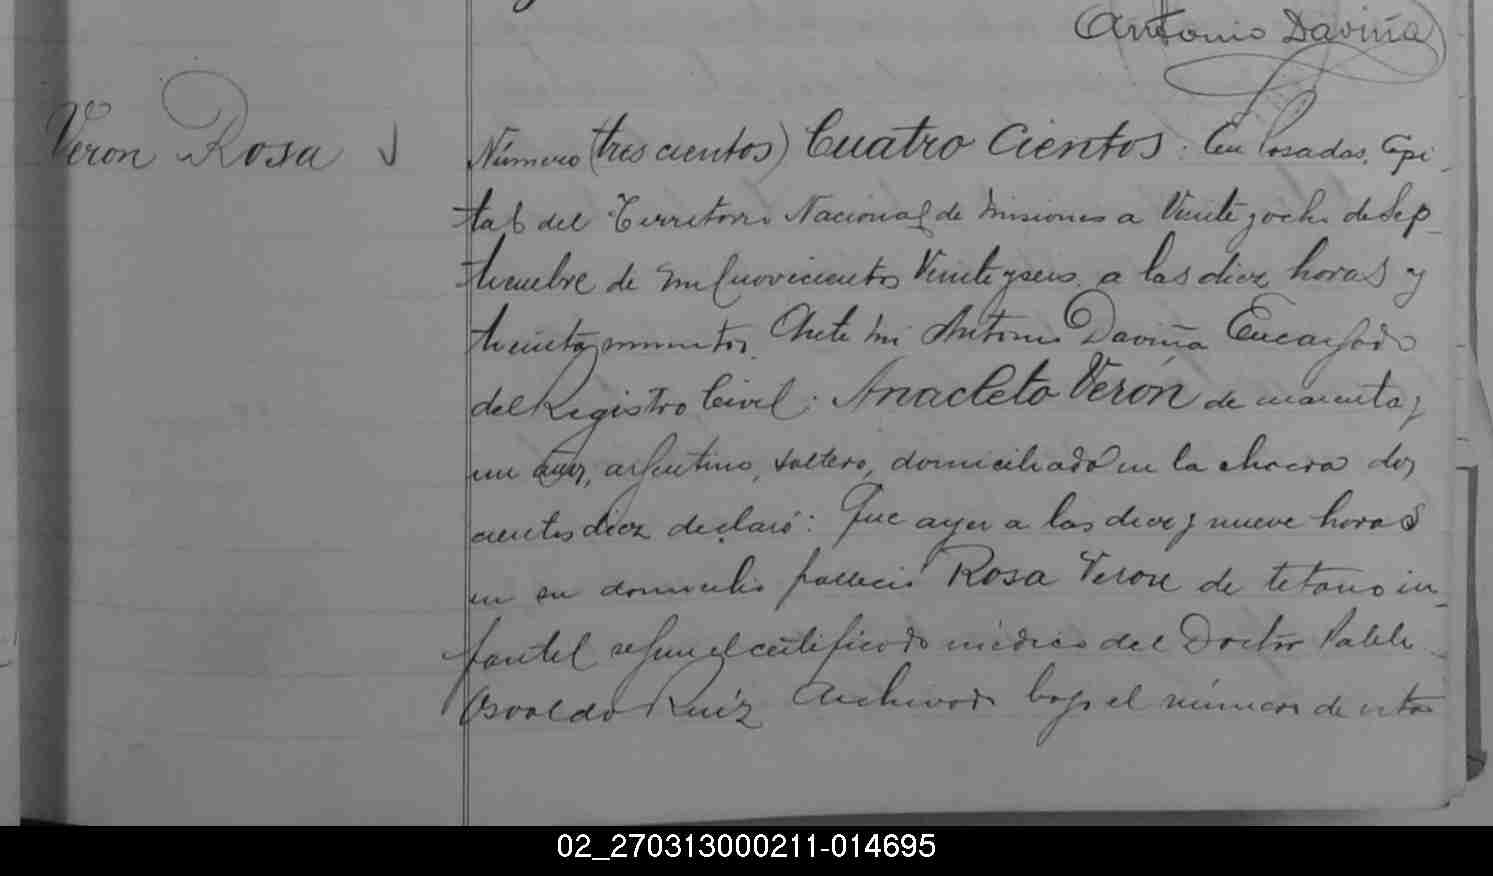 Antonio Daviña
Veron Rosa
Número (tres cientos) Cuatro Cientos: En Posadas, Capi-
tal del Territorio Nacional de Misiones a Veinte y ocho de Sep-
tiembre de mil novecientos Veinte y seis a las diez horas y
treinta minutos. Ante mi Antonio Daviña Encargado
del Registro Civil: Anacleto Verón de cuarenta y
un años, argentino, soltero, domiciliado en la chacra dos
cientos diez declaró: Que ayer a las diez y nueve horas
en su domicilio falleció Rosa Veron de tetano in-
fantil segun el certificado médico del Doctor Pablo
Osvaldo Ruíz archivado bajo el número de esta
02_270313000211-014695